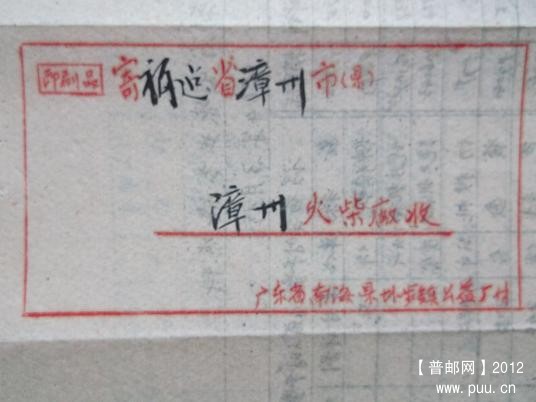 印刷品 寄福建省漳州市(县)
漳州火柴廠收
广东省南海县外海公益厂付
【普邮网】2012
www.puu.cn